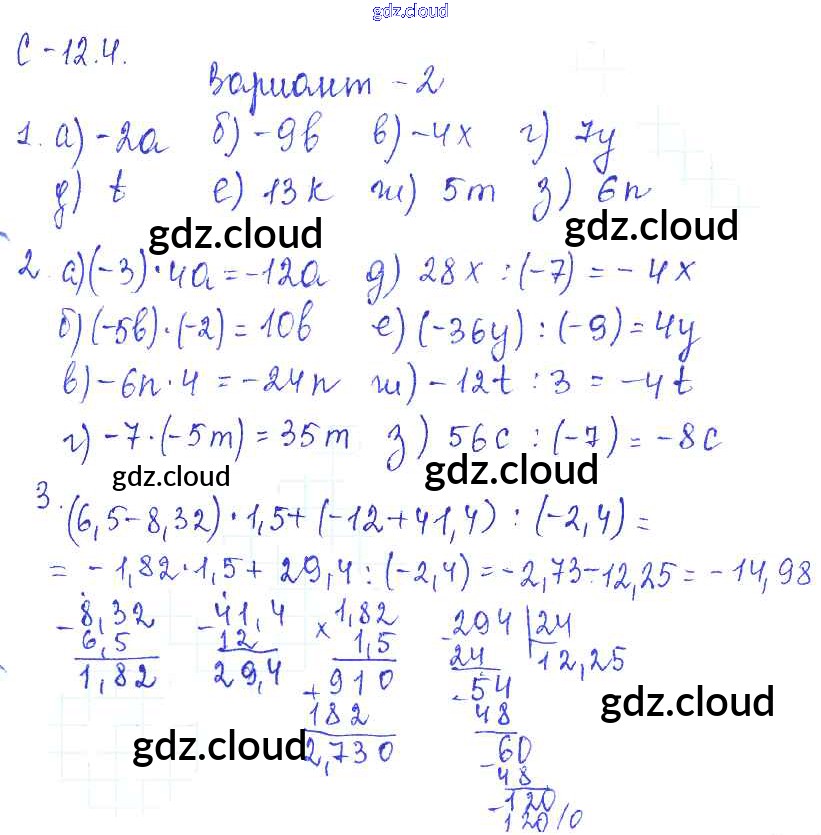 gdz.cloud
С-12.4.
Вариант-2
1. а) -2a б) -9b в) -4x г) 7y
д) t е) 13k ж) 5m з) 6n
gdz.cloud gdz.cloud
2. а) (-3)·4a=-12a д) 28x:(-7)=-4x
б) (-5b)·(-2)=10b е) (-36y):(-9)=4y
в) -6n·4=-24n ж) -12t:3=-4t
г) -7·(-5m)=35m з) 56c:(-7)=-8c
gdz.cloud gdz.cloud
3. (6,5-8,32)·1,5+(-12+41,4):(-2,4)=
=-1,82·1,5+29,4:(-2,4)=-2,73-12,25=-14,98
-8,32 -41,4 ×1,82 -294|24
6,5 12 1,5 24 12,25
1,82 29,4 +910 -54
182 48
2,730 -60
48
-120
120/0
gdz.cloud gdz.cloud